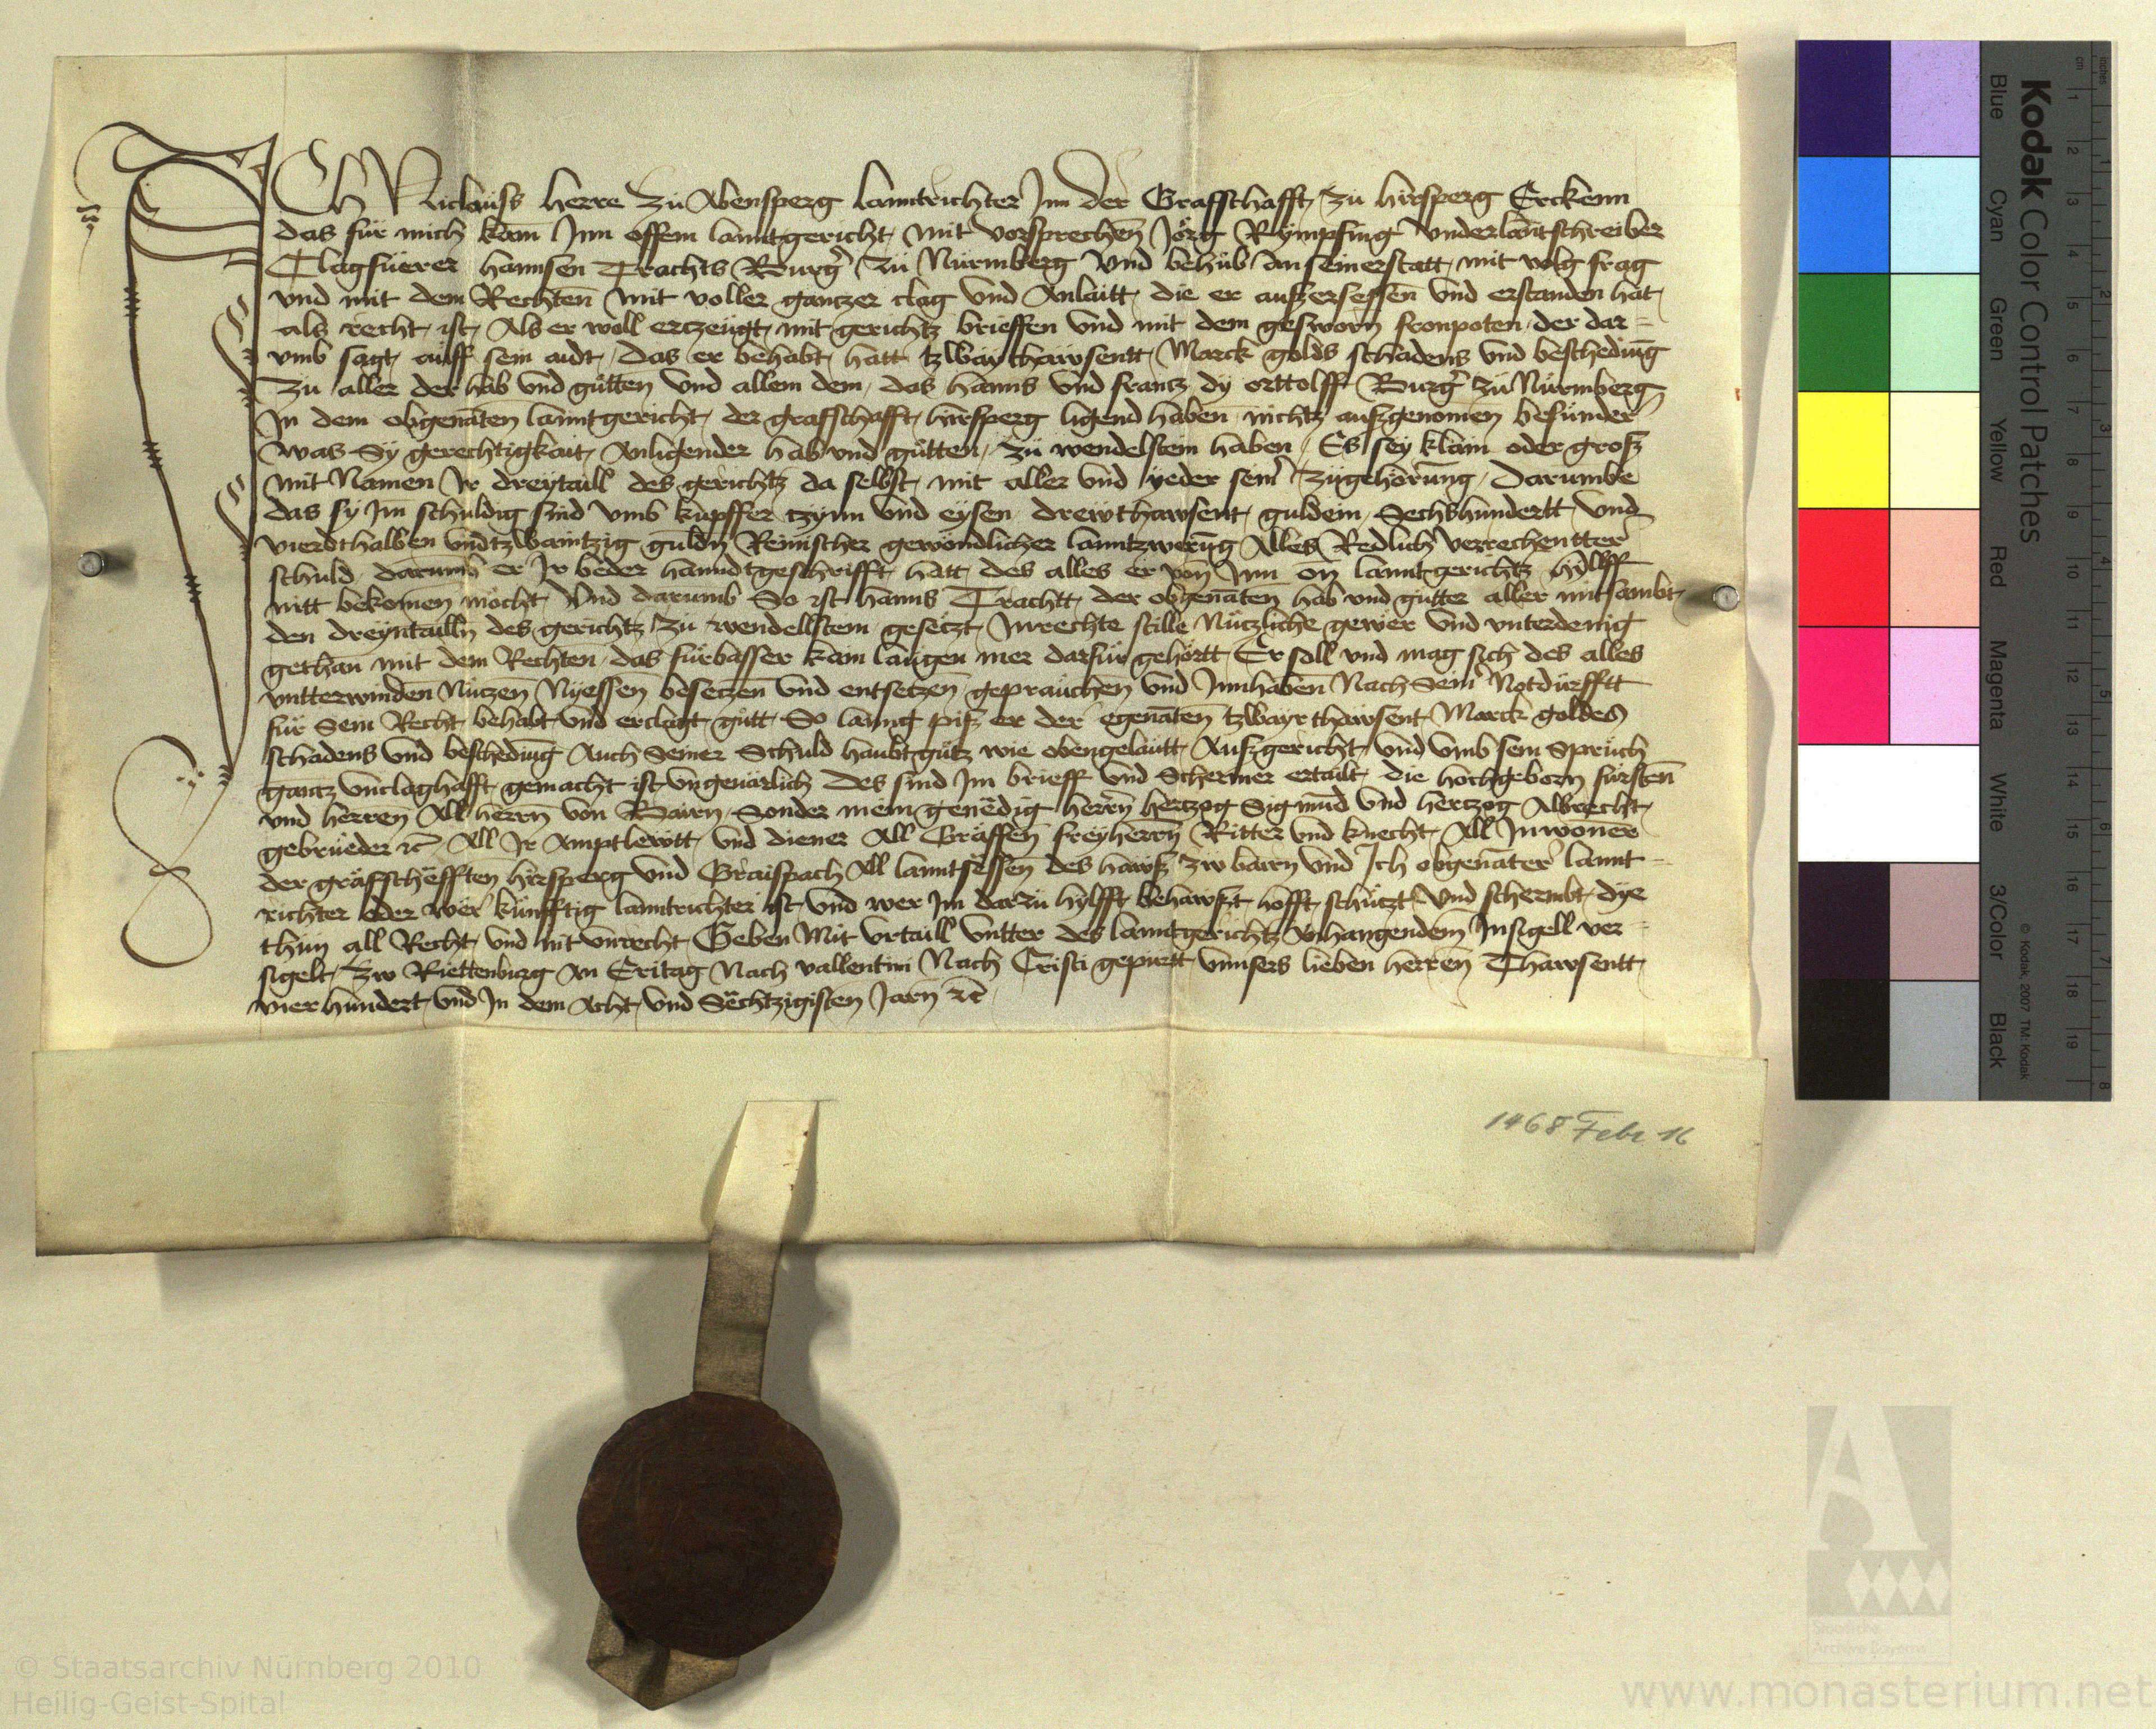 ICh Niclauss herre zu Abensperg lanntrichter Jnn der Graffschafft zu hirsperg Erckenn
das für mich kam Jnn offem lanntgericht mit vorsprechen Jörg Rympfing vnderlanntschreiber
Clagfüerer hannsen Trachts Burgr zu Nürmberg Vnd behüb an seinerstatt mit volg frag
vnd mit dem Rechten mit voller gantzer clag vnd Anlaitt die er auszersessen vnd erstanden hat
als recht ist Als er woll ertzeügt mit gerichtz brieffen vnd mit dem gesworn fronpoten der dar=
vmb sagt auff sein aidt das er behabt hatt tzway thawsentt Marck golds schadens vnd beschedüng
Zu aller der hab vnd gütten vnd allem dem das hanns vnd frantz dy orttolff Burgr zu Nürmberg
Jn dem obgenaten lanntgericht der graffschafft hirsperg ligend haben nichtz ausgenomen besunder
was Sy gerechtigkait Anligender hab vnd gütten zu wendelstein haben Es sey klain oder grosz
mit Namen Jr dreytaill des gerichtz da selbst mit aller vnd yeder seinr zügehörung Darumbe
das sy Jm schuldig sind vmb kupffer tzynn vnd eysen drewthawsent guldein Sechshundertt vnd
vierdthalben vndtzwaintzig guldn Reinischer gewöndlicher lanntzwerug Alles Redlich verrechentter
schuld darumb er Jr beder hanndtgeschrifft hatt des alles er von Jnn on lanntgerichtz hylff
nitt bekomen mocht Vnd darumb So ist hanns Trachtt der obgenaten hab vnd gütter aller mitsambt
den dreyntailln des gerichtz zu wendellstein gesetzt Jnrechte stille Nützliche gewer vnd vnterdenig
gethan mit dem Rechten das fürbasser kain laugen mer darfür gehörtt Er soll vnd mag sich des alles
vntterwinden Nützen Nyessen besetzen vnd entsetzen gepraüchen vnd Jnnhaben Nach Seinr Notdürfftt
für Sein Recht behabt vnd erclagt gütt So lanng pisz er der egenaten tzwayr thawsent Marck goldes
schadens vnd beschedüng Auch Seiner Schuld haubtgütz wie obengelautt Ausgericht vnd vmb sein Sprüch
gantz vnclaghafft gemacht ist vngeuärlich Des sind Jm brieff vnd Schermer ertailt die hochgeborn fürsten
vnd herren All herrn von Bairn Sonder mein genedig herrn hertzog Sigmund vnd hertzog Albrecht
gebrüeder rc All Jr Amptlewtt vnd diener All Graffen freyherrn Ritter vnd knecht All Jnwoner
der graffschefften hirsperg vnd Graispach All lanntsessen des hawsz zw bairn vnd Jch obgenater lannt=
richter oder wer künfftig lanntrichter ist vnd wer Jm darzu hylfft behawst hofft schützt vnd schermbt dye
thun all Recht vnd nit vnrecht Geben Mit vrtaill vntter des lanntgerichtz Anhangendem Jnsigell ver=
sigelt Zw Riettenburg An Eritag Nach vallentini Nach Cristi gepurtt vnnsers lieben herren Thawsentt
vierhundert vnd Jn dem Acht vnd Sechtzigisten Jarn rc
1468 Febr. 16
Kodak Color Control Patches
Blue Cyan Green Yellow Red Magenta White 3/Color Black
© Kodak, 2007 TM: Kodak
cm 1 2 3 4 5 6 7 8 9 10 11 12 13 14 15 16 17 18 19
inches 1 2 3 4 5 6 7 8
Staatliche
Archive Bayerns
© Staatsarchiv Nürnberg 2010
Heilig-Geist-Spital
www.monasterium.net